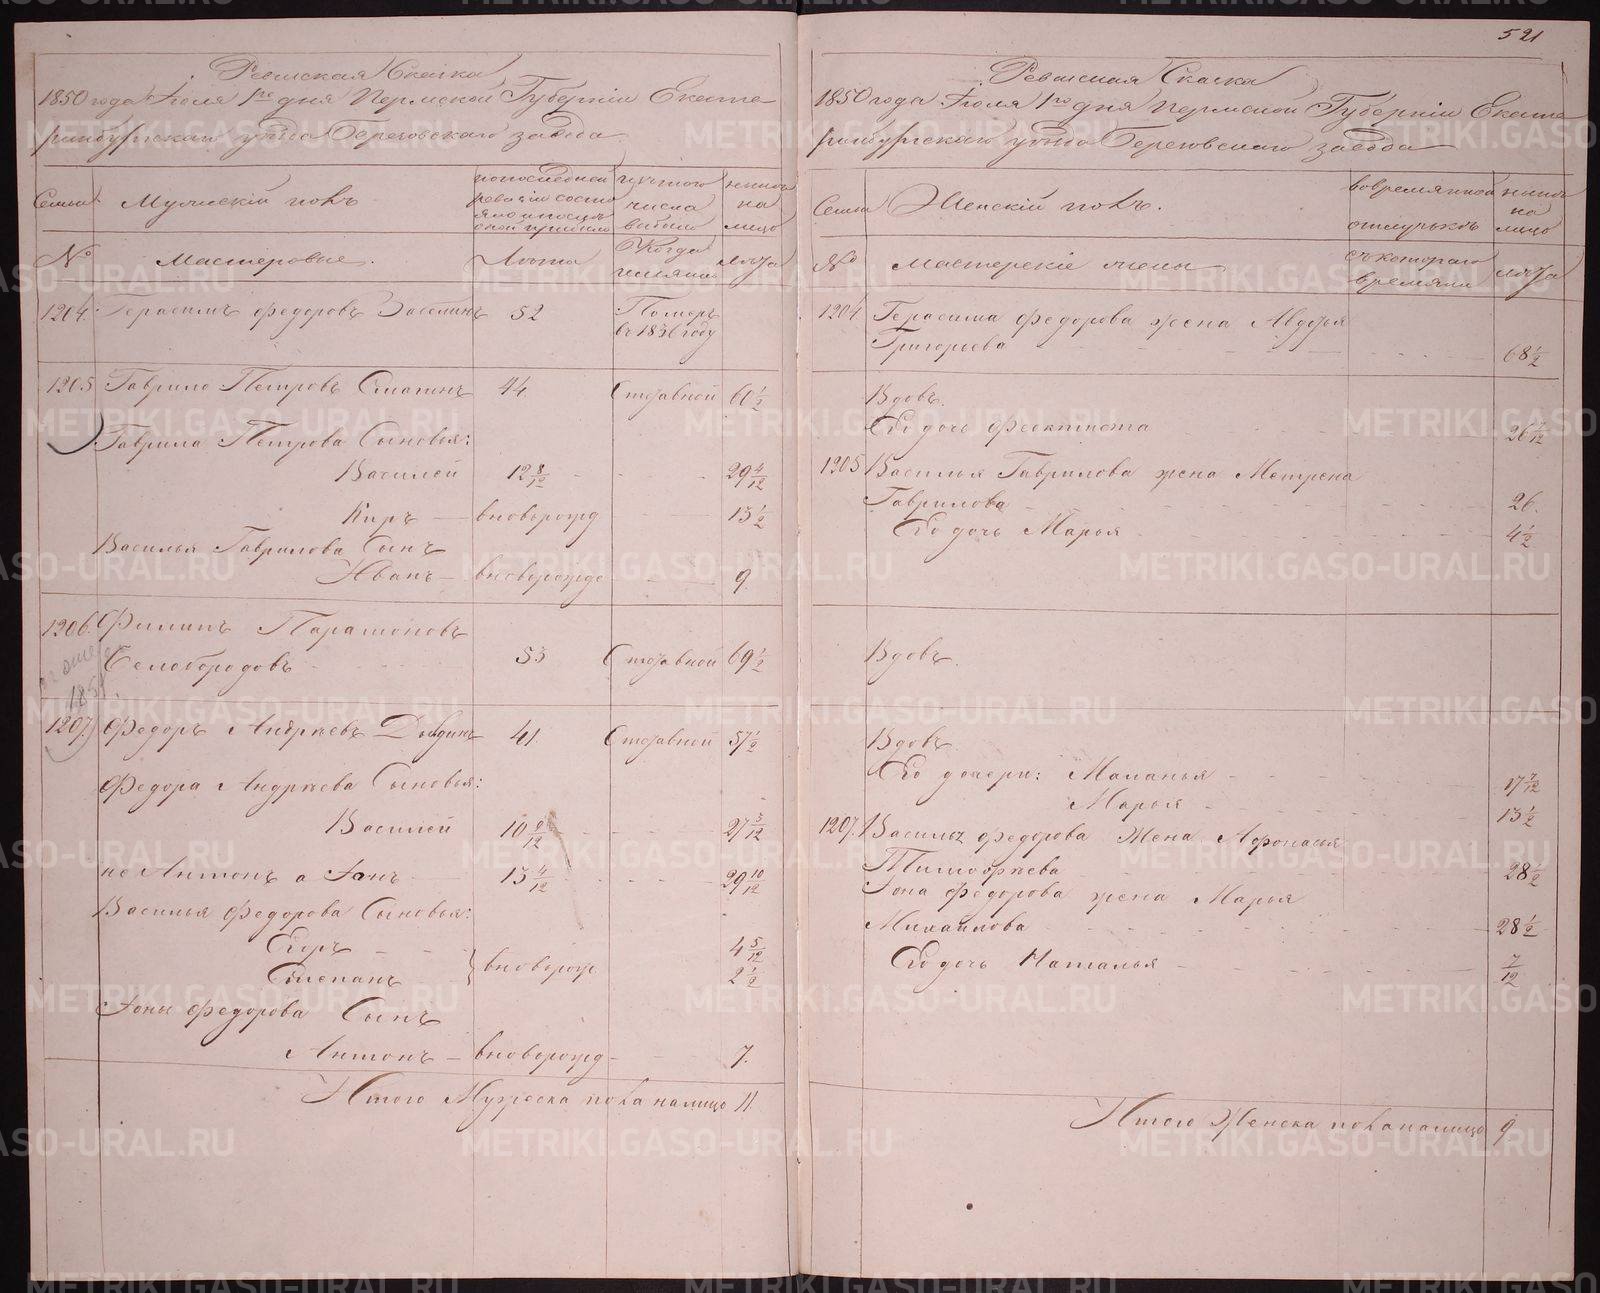 521
Ревизская Сказка
1850 года Іюля 1го дня Пермской Губерніи Екате-
ринбургскаго уѣзда Березовскаго завода
Семьи
Мужескій полъ
по последней
ревизіи состо
яло и после
оной прибыло
изъ того
числа
выбыло
ныне
на
лицо
№
Мастеровые.
Лѣта
Когда
именно
лѣта
1204.
Герасимъ Федоровъ
52
Померъ
въ 1836 году
1205
Гаврило Петровъ
44.
Отставной
60 1/2
Гаврила Петрова Сыновья:
Василей
12 8/12
29 4/12
Киръ
вноворожд
13 1/2
Василья Гаврилова Сынъ
Иванъ
вноворожде
9
1206.
Филипъ Парамоновъ
Белобородовъ
53
Отставной
69 1/2
1207.
Федоръ Андреевъ
41.
Отставной
57 1/2
Федора Андреева Сыновья:
Василей
10
27 3/12
не Антонъ а Іонъ
13 4/12
29 10/12
Василья Федорова Сыновья:
Егоръ
4 5/12
Степанъ
вноворож
2 1/2
Іоны Федорова Сынъ
Антонъ
вноворожд
7.
Итого Мужеска пола налицо 11.
Ревизская Сказка
1850 года Іюля 1го дня Пермской Губерніи Екате
ринбургскаго уѣзда Березовскаго завода
Семьи
Женскій полъ.
во временной
отлучкѣ
ныне
на
лицо
№
Мастерскіе жены
съ котораго
времяни
лѣта
1204
Герасима Федорова жена Авдотья
Григорьева
68 1/2
Вдовъ.
Его дочь Феоктиста
26 7/12
1205
Василья Гаврилова жена Матрена
Гаврилова
26.
Его дочь Марья
4 1/2
Вдовъ.
Вдовъ.
Его дочери: Маланья
17 7/12
Марья
13 1/2
1207.
Василья Федорова Жена Афонасья
Тимофеева
28 1/2
Іона Федорова жена Марья
Михайлова
28 1/2
Его дочь Наталья
7/12
Итого Женска пола налицо 9
METRIKI.GASO-URAL.RU